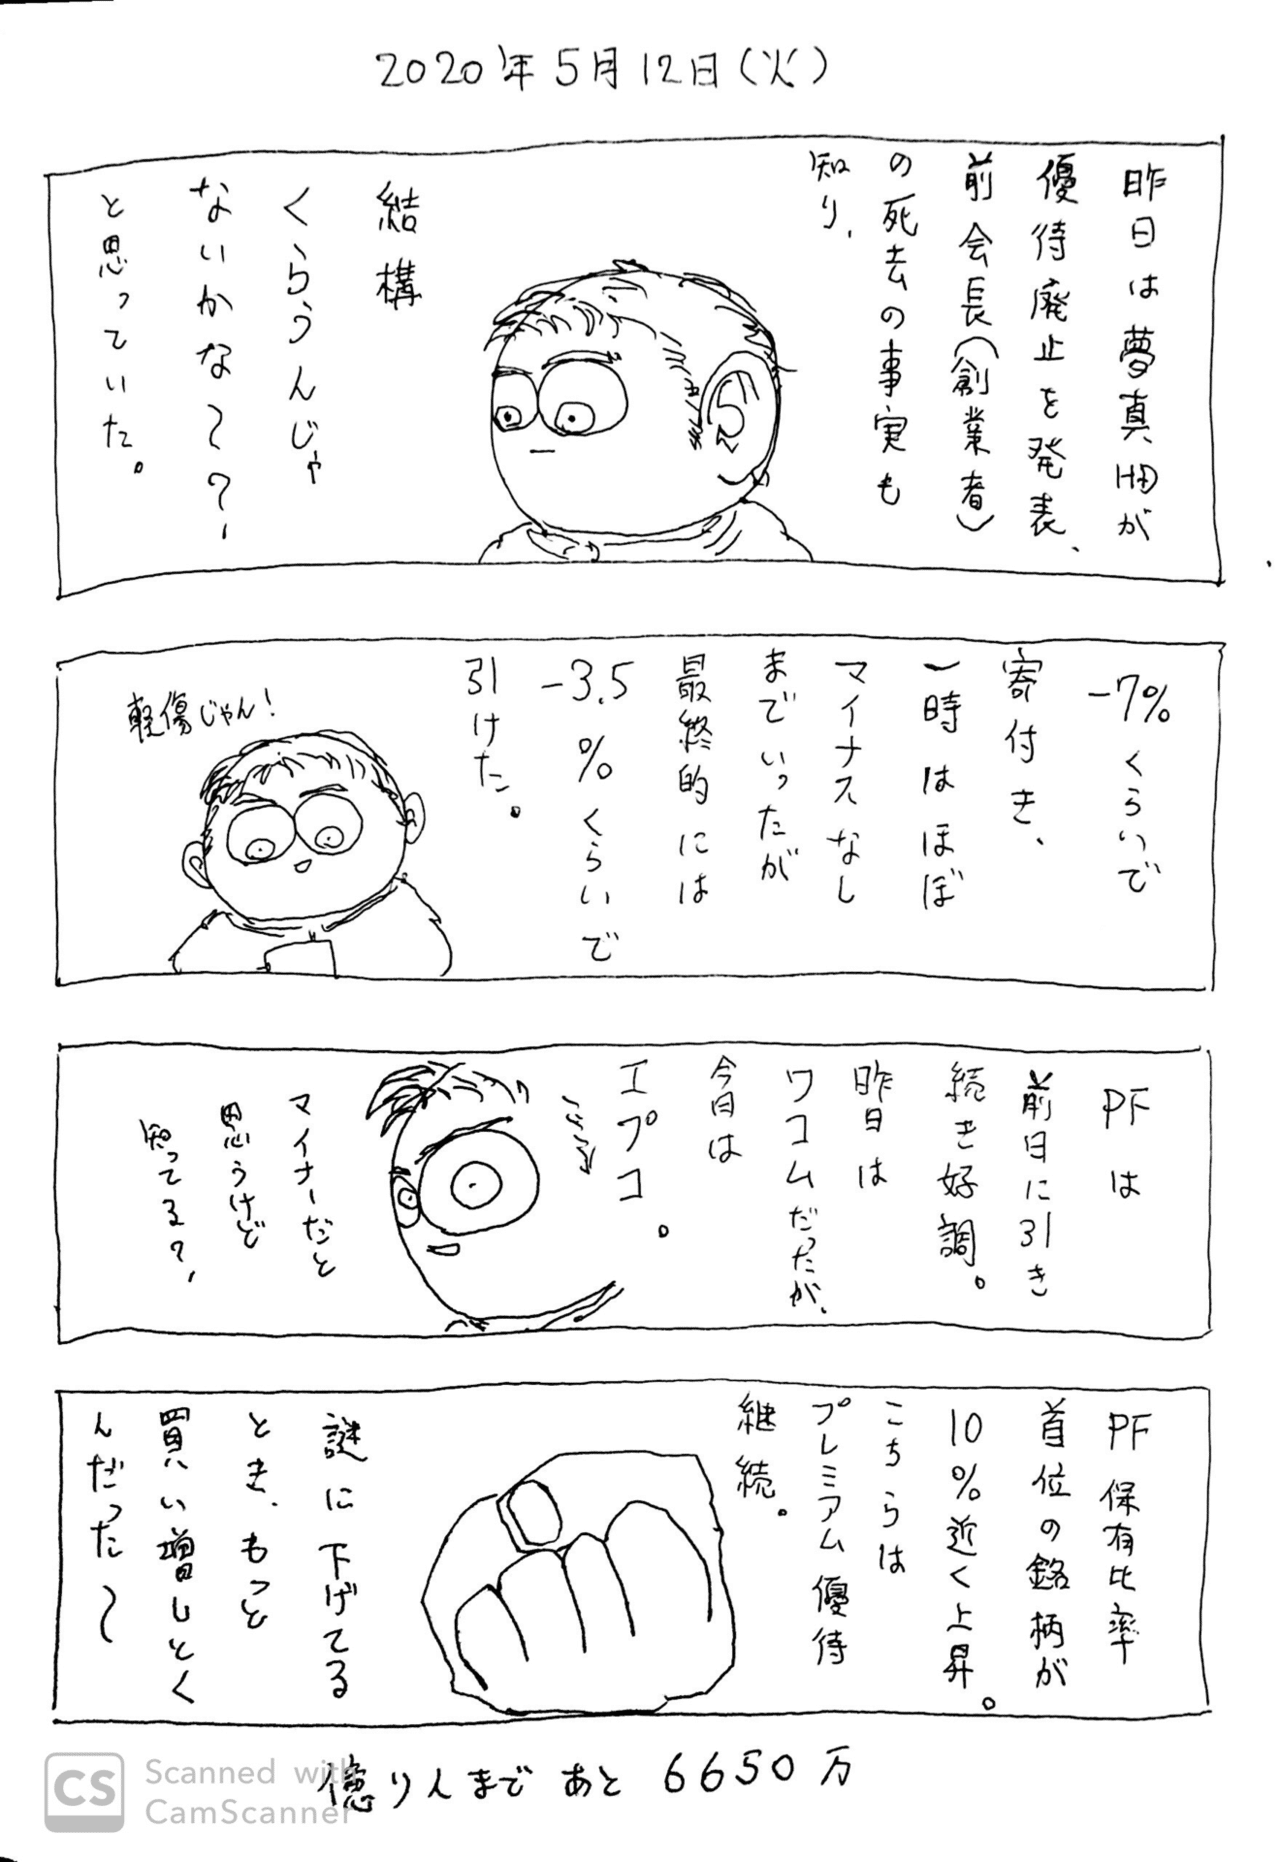 2020年5月12日(火)
昨日は夢真HDが
優待廃止を発表、
前会長(創業者)
の死去の事実も
知り、
結構
くらうんじゃ
ないかな〜?
と思っていた。
-7%くらいで
寄付き、
一時はほぼ
マイナスなし
までいったが
最終的には
-3.5%くらいで
引けた。
軽傷じゃん!
PFは
前日に引き
続き好調。
昨日は
ワコムだったが、
今日は
エプコ。
マイナーだと
思うけど
知ってる?
PF保有比率
首位の銘柄が
10%近く上昇。
こちらは
プレミアム優待
継続。
謎に下げてる
とき、もっと
買い増しとく
んだった〜
億り人まであと6650万
CS
Scanned with
CamScanner